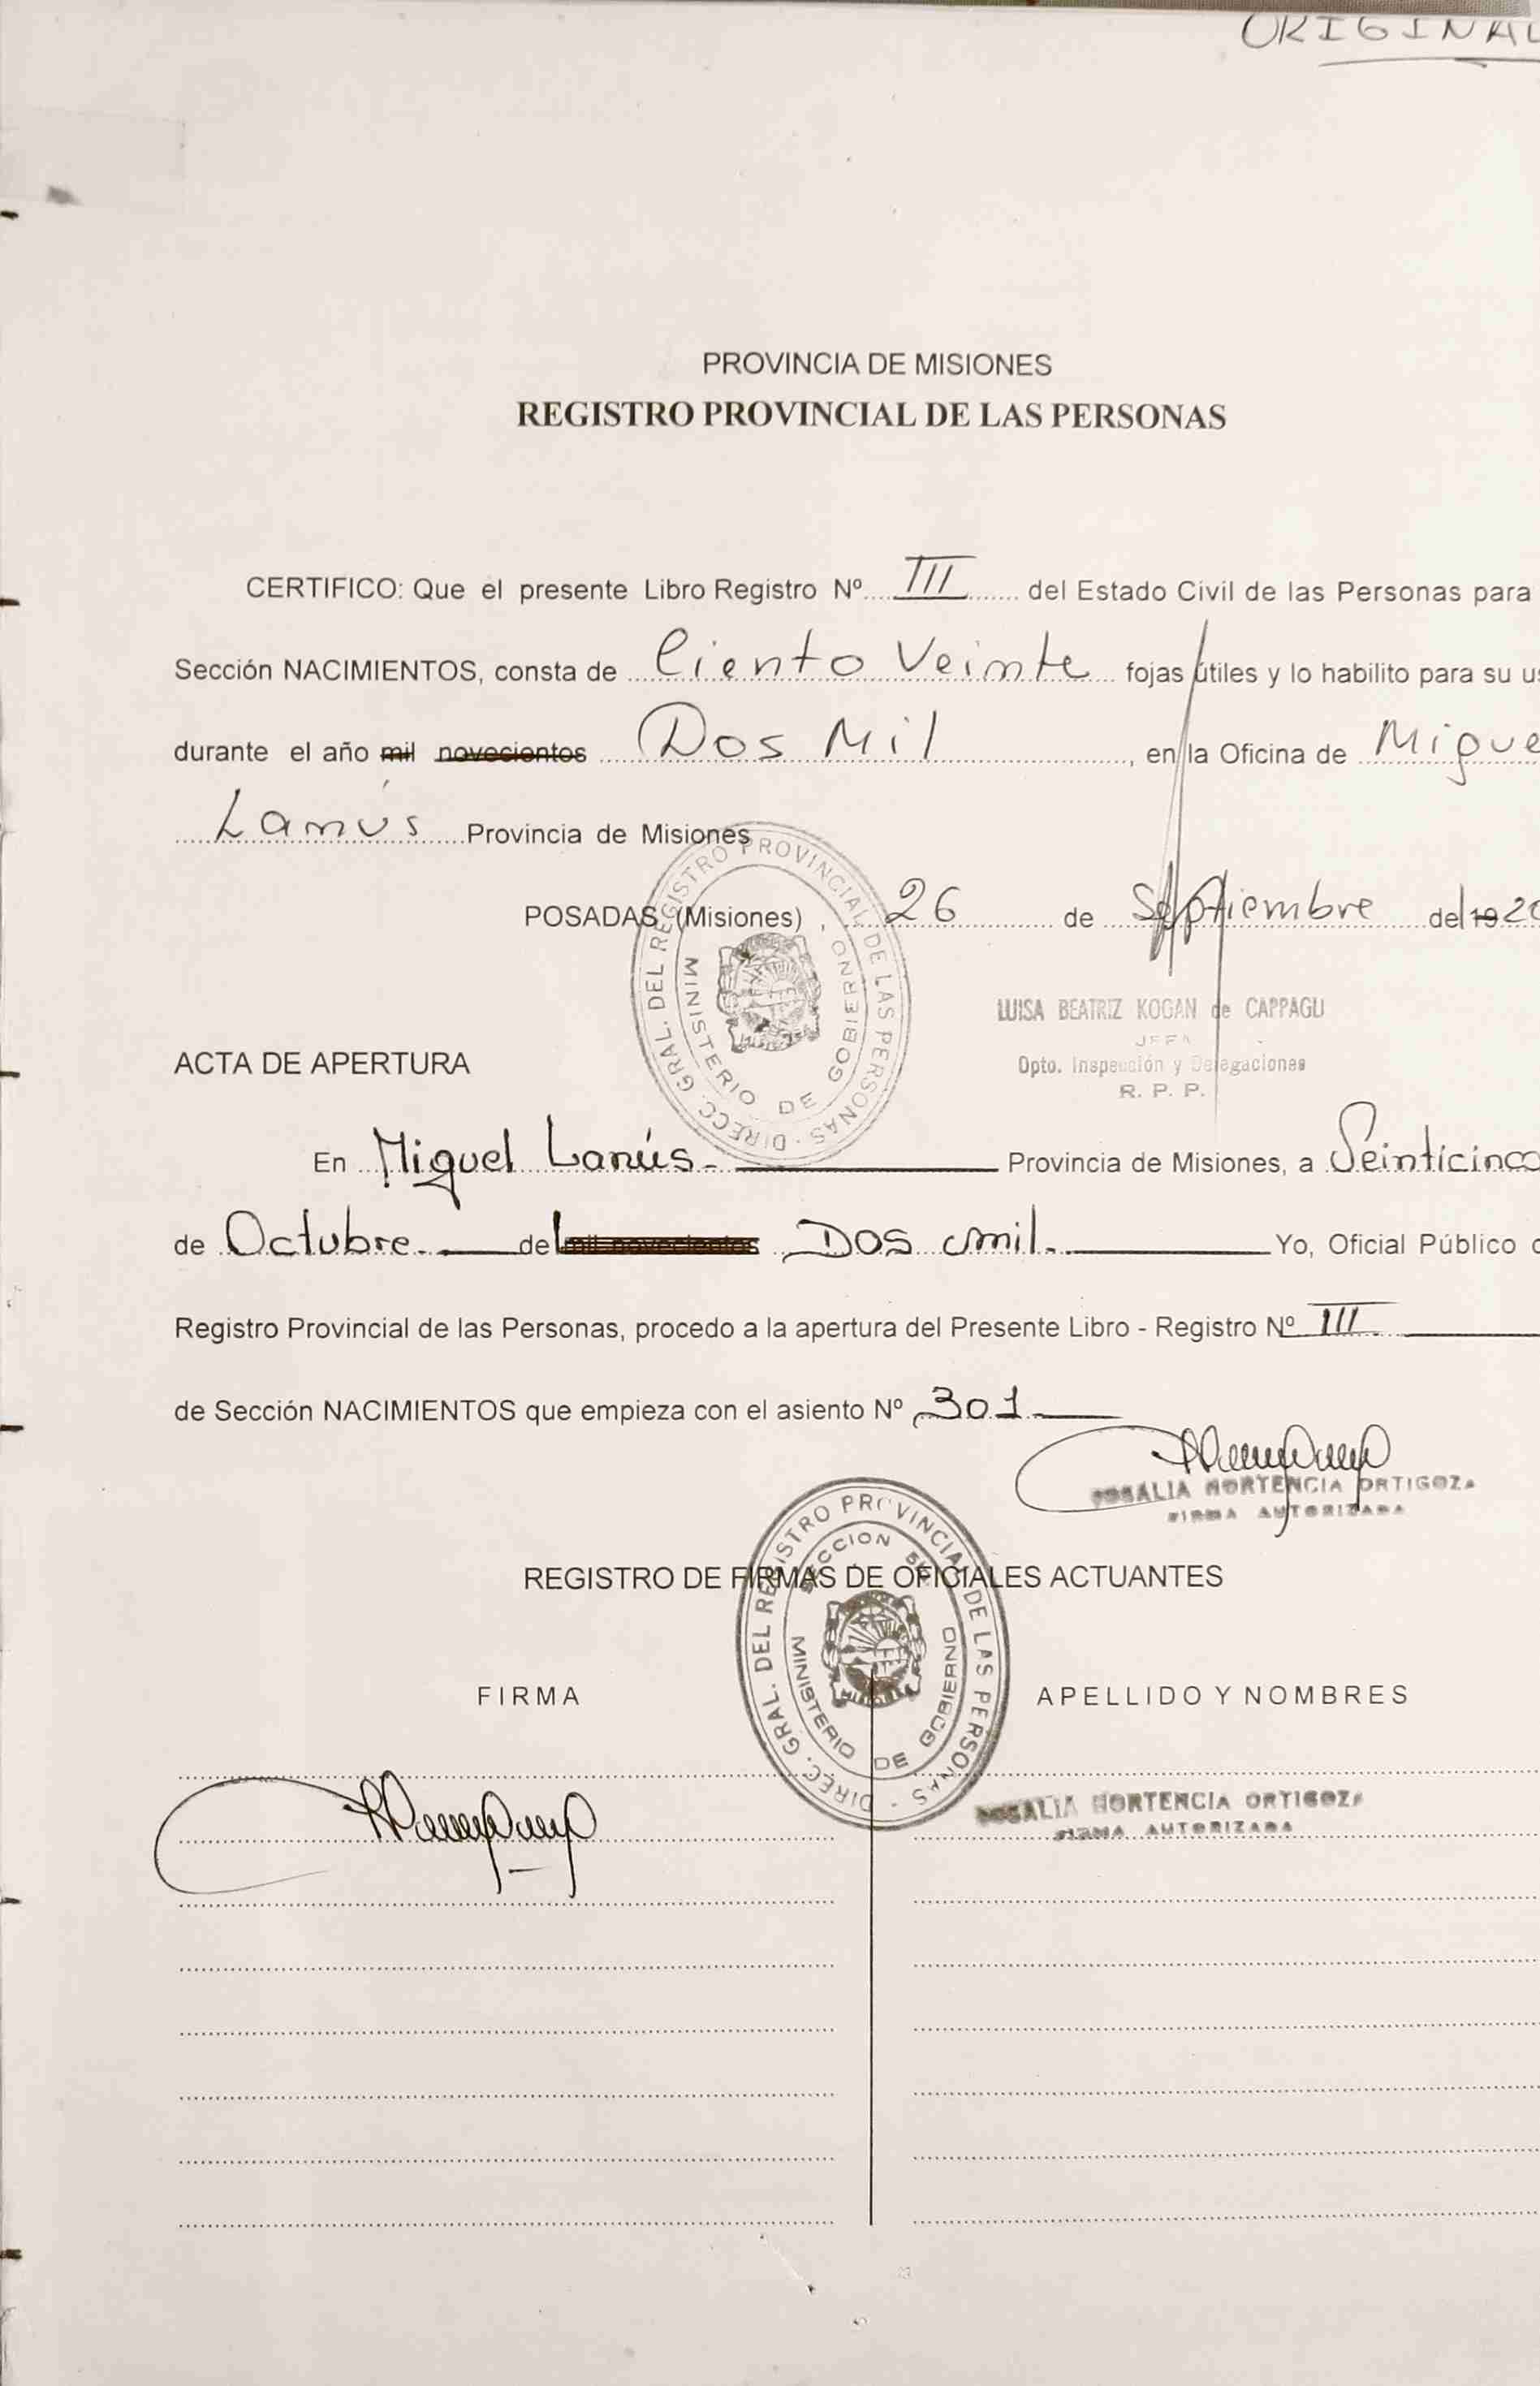 ORIGINAL
PROVINCIA DE MISIONES
REGISTRO PROVINCIAL DE LAS PERSONAS
CERTIFICO: Que el presente Libro Registro Nº III del Estado Civil de las Personas para
Sección NACIMIENTOS, consta de Ciento Veinte fojas útiles y lo habilito para su us
durante el año mil novecientos Dos Mil, en la Oficina de Migue
Lanús Provincia de Misiones
POSADAS, (Misiones) 26 de Septiembre del 19 20
DIRECC. GRAL. DEL REGISTRO PROVINCIAL DE LAS PERSONAS
MINISTERIO DE GOBIERNO
LUISA BEATRIZ KOGAN de CAPPAGLI
JEFA
Opto. Inspección y Delegaciones
R. P. P.
ACTA DE APERTURA
En Miguel Lanús- Provincia de Misiones, a Veinticinco
de Octubre. del mil novecientos Dos mil. Yo, Oficial Público
Registro Provincial de las Personas, procedo a la apertura del Presente Libro - Registro Nº III
de Sección NACIMIENTOS que empieza con el asiento Nº 301
ROSALIA HORTENCIA ORTIGOZA
FIRMA AUTORIZADA
DIREC. GRAL. DEL REGISTRO PROVINCIAL DE LAS PERSONAS
SECCION
MINISTERIO DE GOBIERNO
REGISTRO DE FIRMAS DE OFICIALES ACTUANTES
FIRMA APELLIDO Y NOMBRES
ROSALIA HORTENCIA ORTIGOZA
FIRMA AUTORIZADA